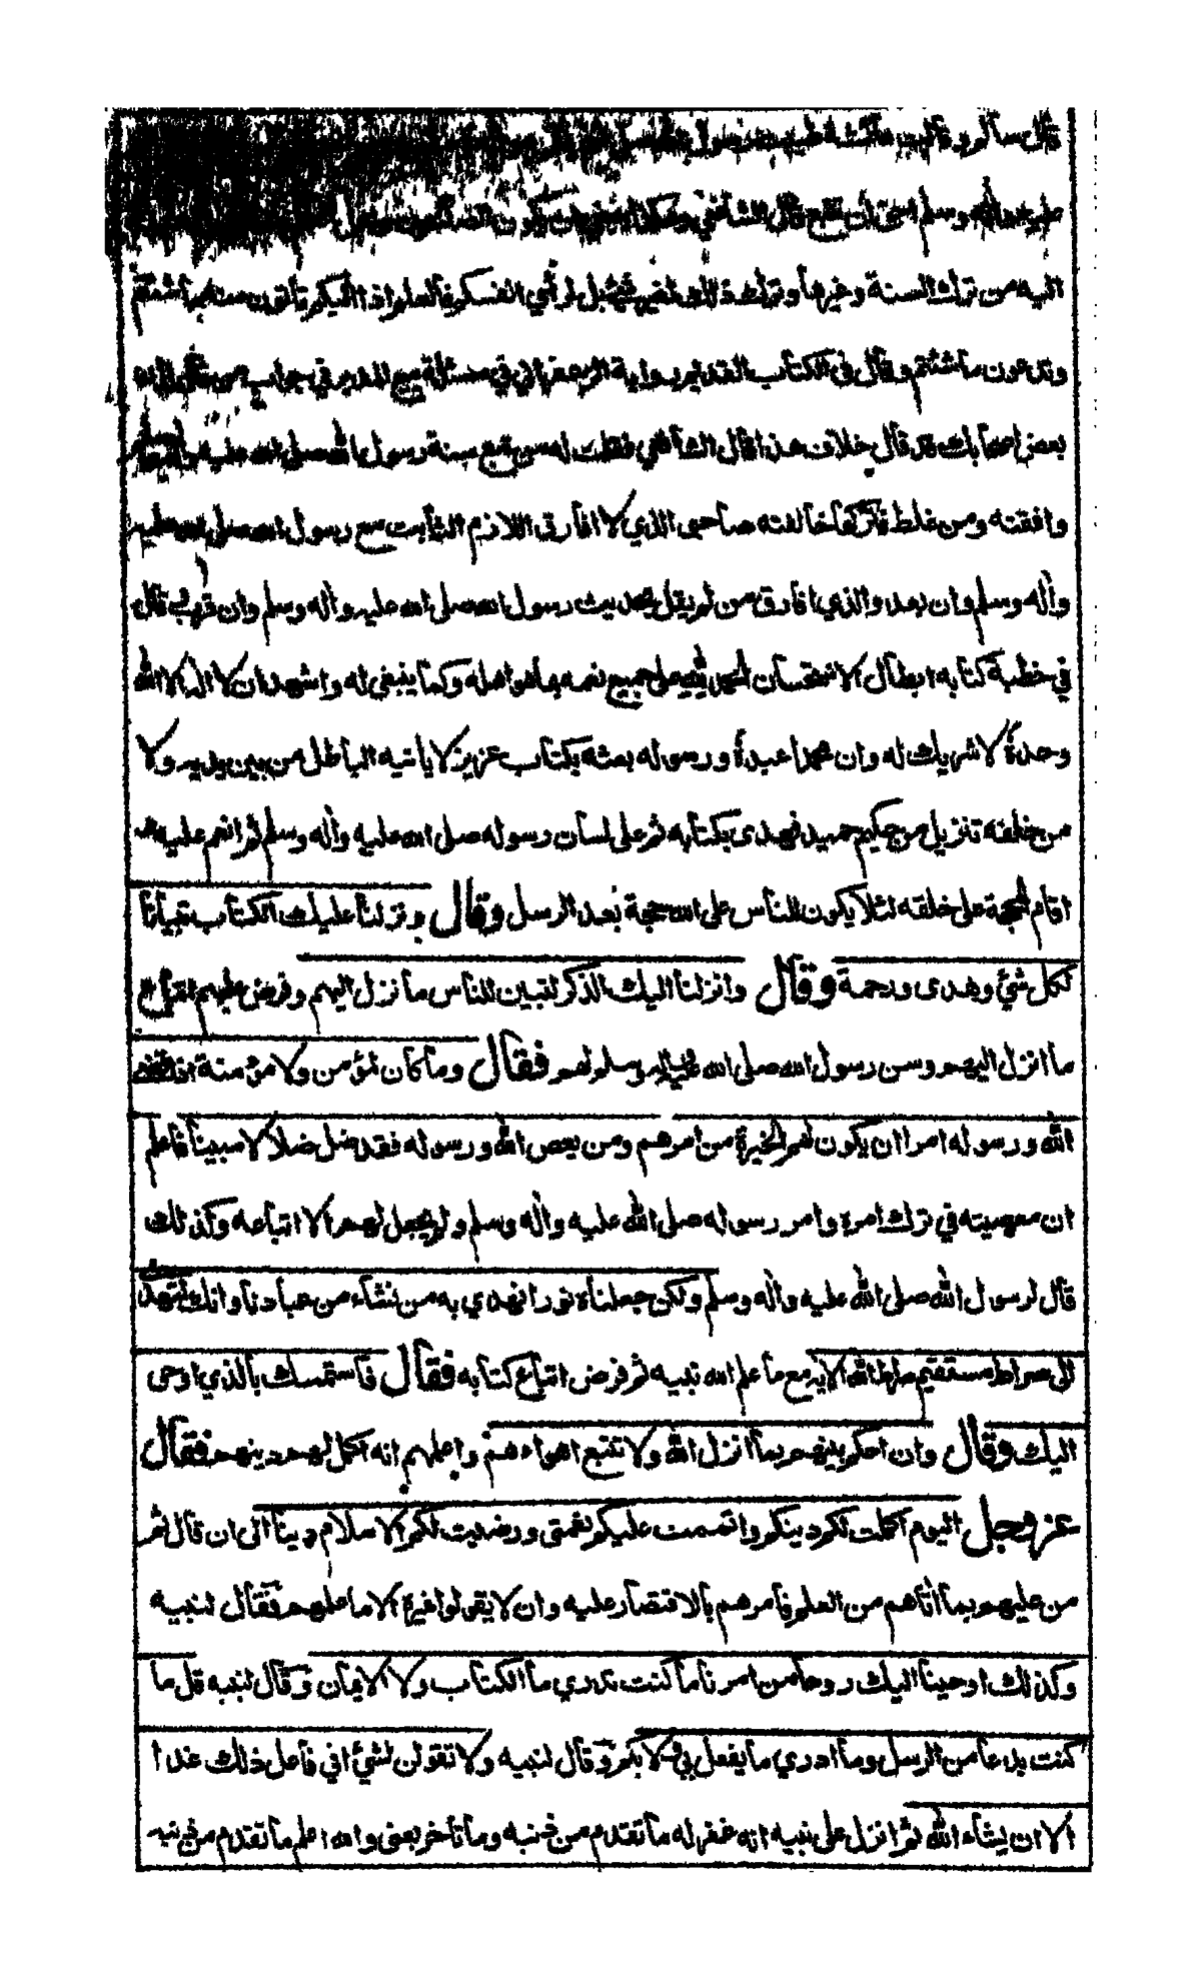 قال سالم وقالت عائشة طيبت رسول الله صلى الله
عليه وآله وسلم احق ان تتبع قال الشافعي وهكذا ينبغي ان يكون
اليه من ترك السنة وغيرها وترك ذلك لغير شيء بل لرأي انفسكم فالعلم اذا اليكم تأتون منه ما شئتم
وتدعون ما شئتم وقال في الكتاب القديم برواية الزعفراني في مسئلة بيع المدبر في جواب من قال له
بعض اصحابك قد قال خلاف هذا قال الشافعي فقلت له من تبع سنة رسول الله صلى الله عليه وآله وسلم
وافقته ومن غلط فتركها خالفته صاحبي الذي لا افارق اللازم الثابت مع رسول الله صلى الله عليه
وآله وسلم وان بعد والذي افارق من لم يقل بحديث رسول الله صلى الله عليه وآله وسلم وان قرب قال
في خطبة كتابه ابطال الاستحسان الحمد لله على جميع نعمه بما هو اهله وكما ينبغي له واشهد ان لا اله الا الله
وحدهٗ لا شريك له وان محمدا عبدهٗ ورسوله بعثه بكتاب عزيز لا ياتيه الباطل من بين يديه ولا
من خلفه تنزيل من حكيم حميد فهدى بكتابه ثم على لسان رسوله صلى الله عليه وآله وسلم ثم انعم عليهم
اقام الحجة على خلقه لئلا يكون للناس على الله حجة بعد الرسل وقال ونزلنا عليك الكتاب تبيانا
لكل شئ وهدى ورحمة وقال وانزلنا اليك الذكر لتبين للناس ما نزل اليهم وفرض عليهم اتباع
ما انزل اليهم وسن رسول الله صلى الله عليه وآله وسلم لهم فقال وما كان لمؤمن ولا مؤمنة اذا قضى
الله ورسوله امرا ان يكون لهم الخيرة من امرهم ومن يعص الله ورسوله فقد ضل ضلالا مبينا فاعلم
ان معصيته في ترك امره وامر رسوله صلى الله عليه وآله وسلم ولم يجعل لهم الا اتباعه وكذلك
قال لرسول الله صلى الله عليه وآله وسلم ولكن جعلناه نورا نهدي به من نشاء من عبادنا وانك لتهدي
الى صراط مستقيم صراط الله الآية مع ما علم الله نبيه ثم فرض اتباع كتابه فقال فاستمسك بالذي اوحى
اليك وقال وان احكم بينهم بما انزل الله ولا تتبع اهواءهم واعلمهم انه اكمل لهم دينهم فقال
عز وجل اليوم اكملت لكم دينكم واتممت عليكم نعمتى ورضيت لكم الاسلام دينا الى ان قال ثم
من عليهم بما آتاهم من العلم فامرهم بالاقتصار عليه وان لا يقولوا غيره الا ما علمهم فقال لنبيه
وكذلك اوحينا اليك روحا من امرنا ما كنت تدري ما الكتاب ولا الايمان وقال لنبيه قل ما
كنت بدعا من الرسل وما ادري ما يفعل بي ولا بكم وقال لنبيه ولا تقولن لشئ اني فاعل ذلك غدا
الا ان يشاء الله ثم انزل على نبيه انه غفر له ما تقدم من ذنبه وما تأخر يعنى والله اعلم ما تقدم من ذنبه